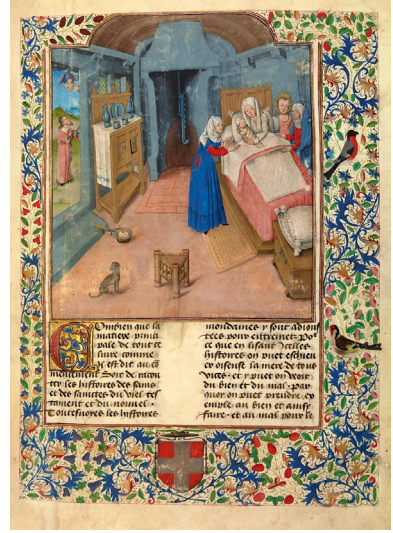 Combien que la
matiere princi
pale de tout ce
liure comme
Il est dit au co
mencement Soit de racon
ter les histoires des sains
et des sainctes du viel tes
tament et du nouuel .
Toutesuoyes les histoires
mondaines y sont adious
tees pour
ce que en lisant Icelles
histoires on puet eschieu
er la mere de tous
vices . et y puet on veoir
du bien et du mal . par
quoy on puet prendre ex
emple au bien et
faire . et au mal pour le